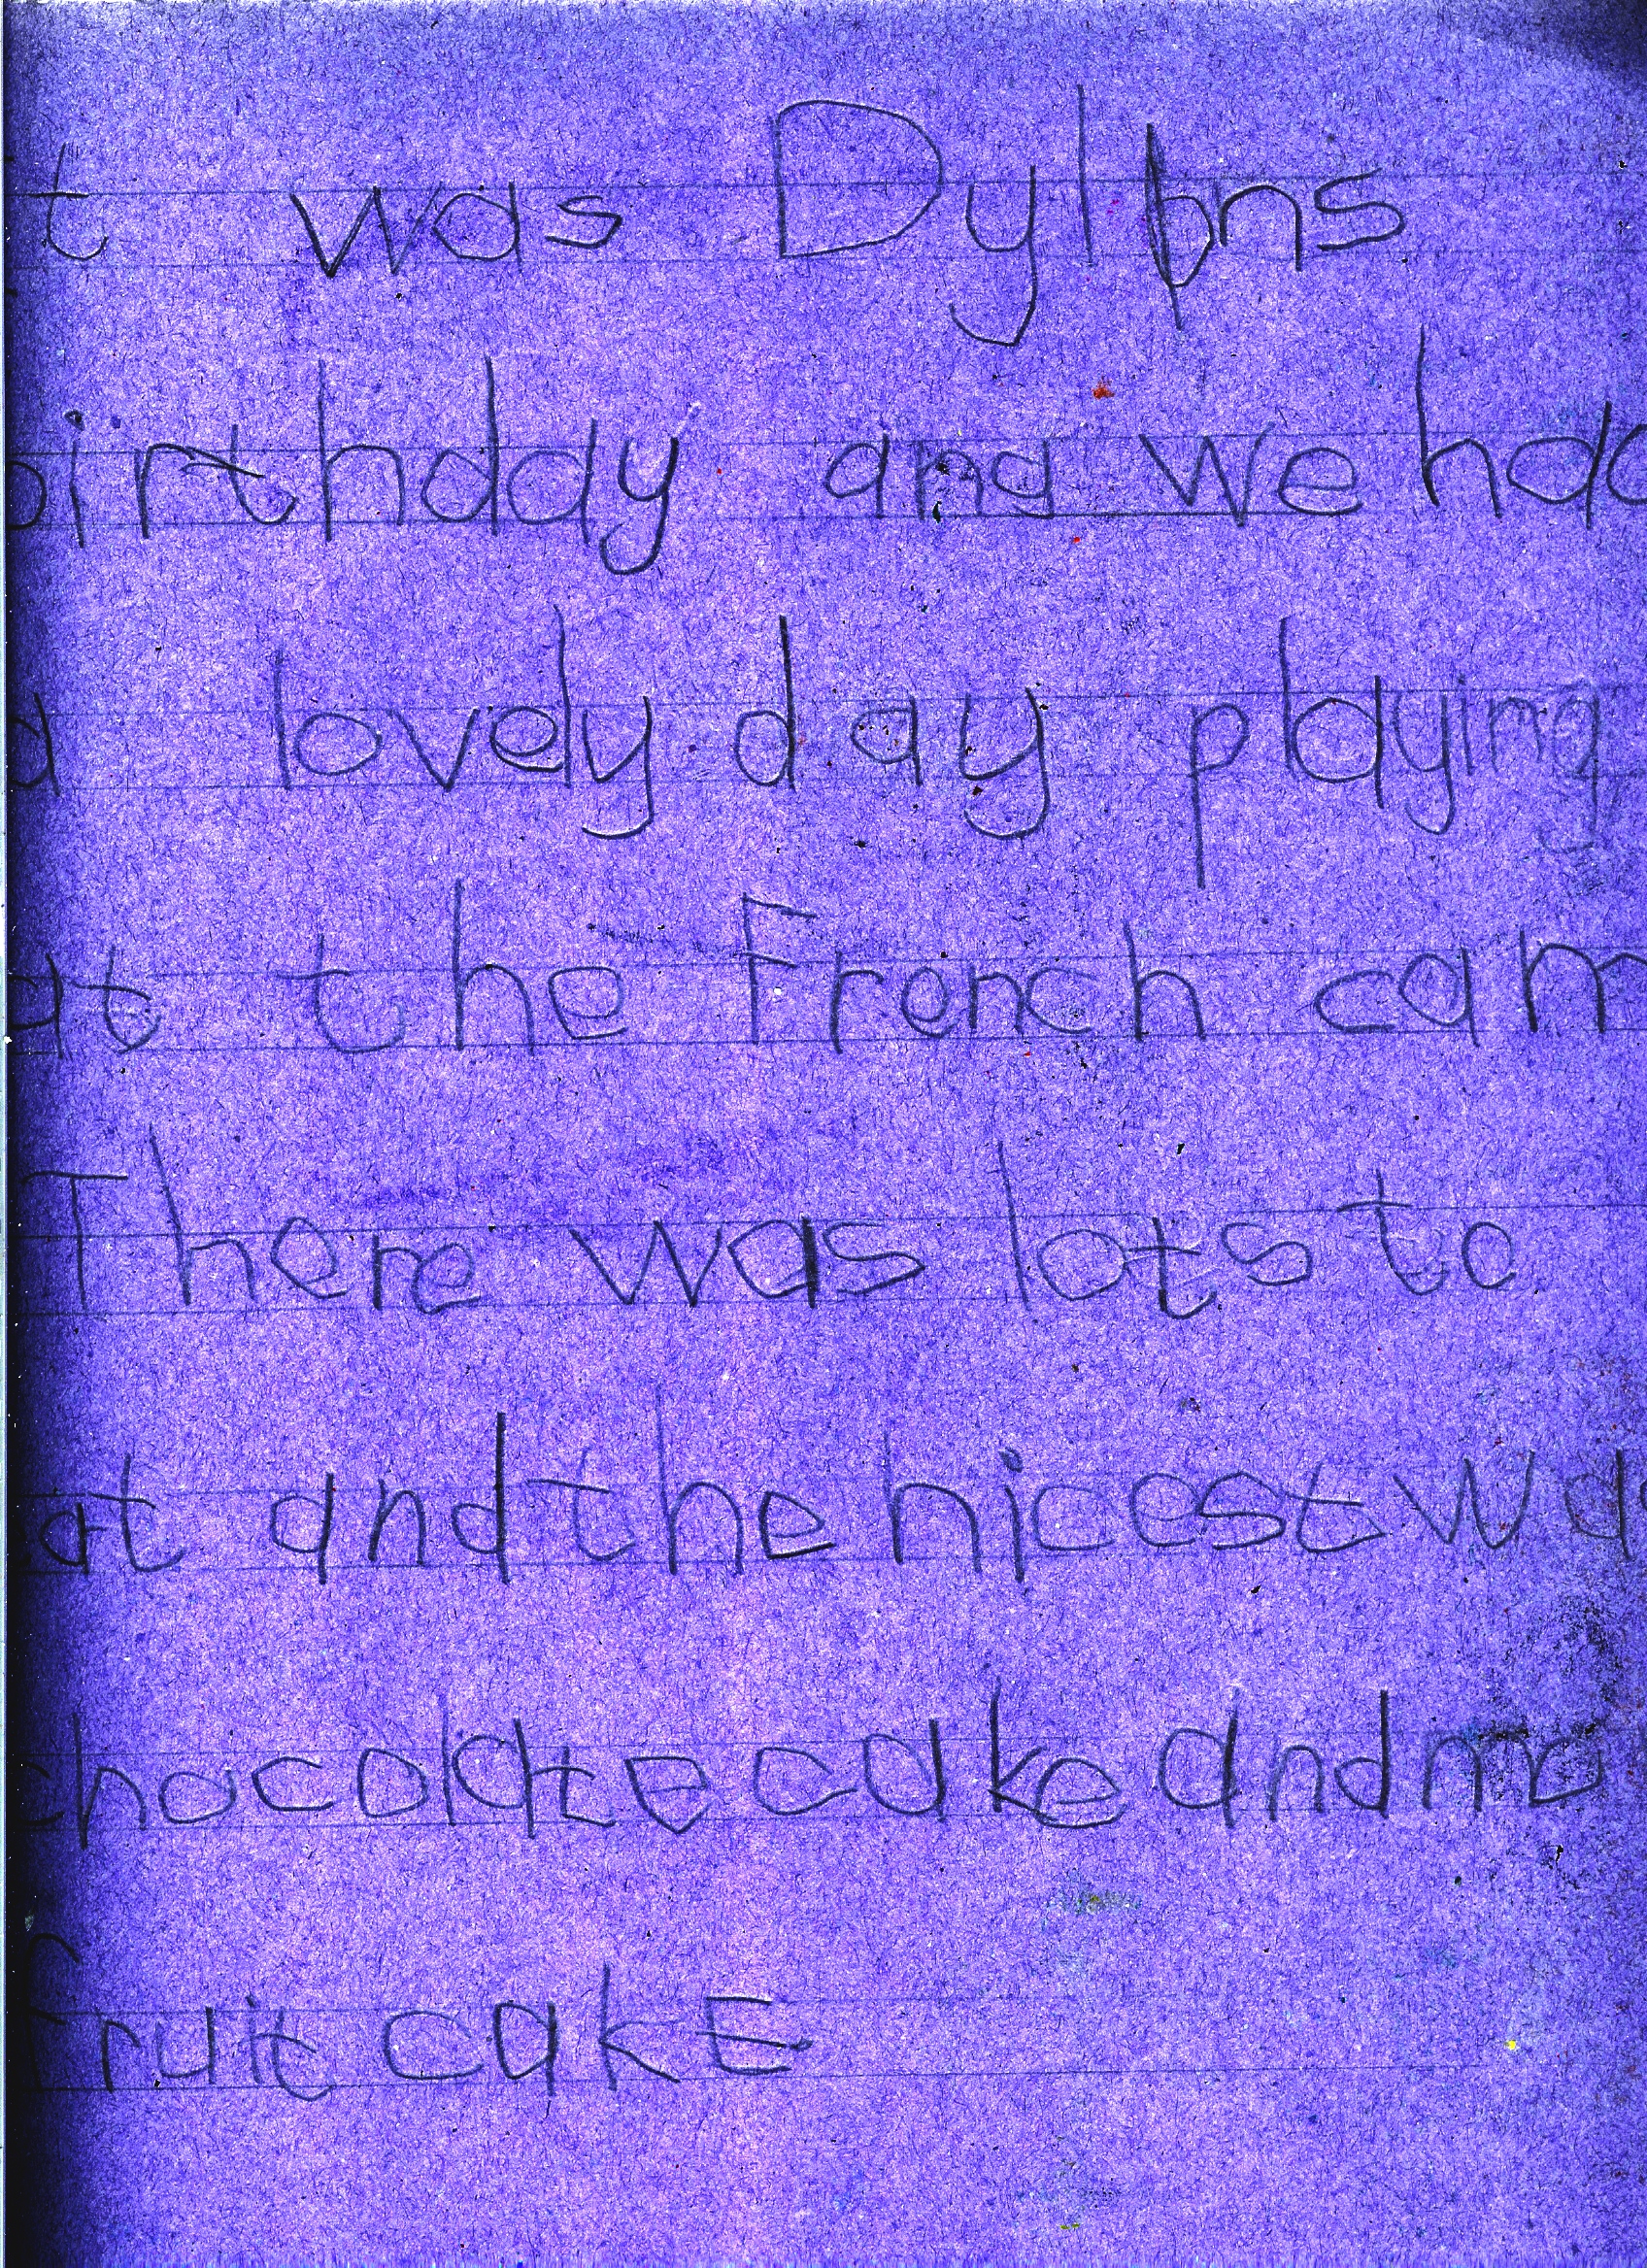 t was Dylans
birthday and we had
a lovely day playing
at the French cam
There was lots to
at and the nicest wa
chocolate cake and ma
fruit cake